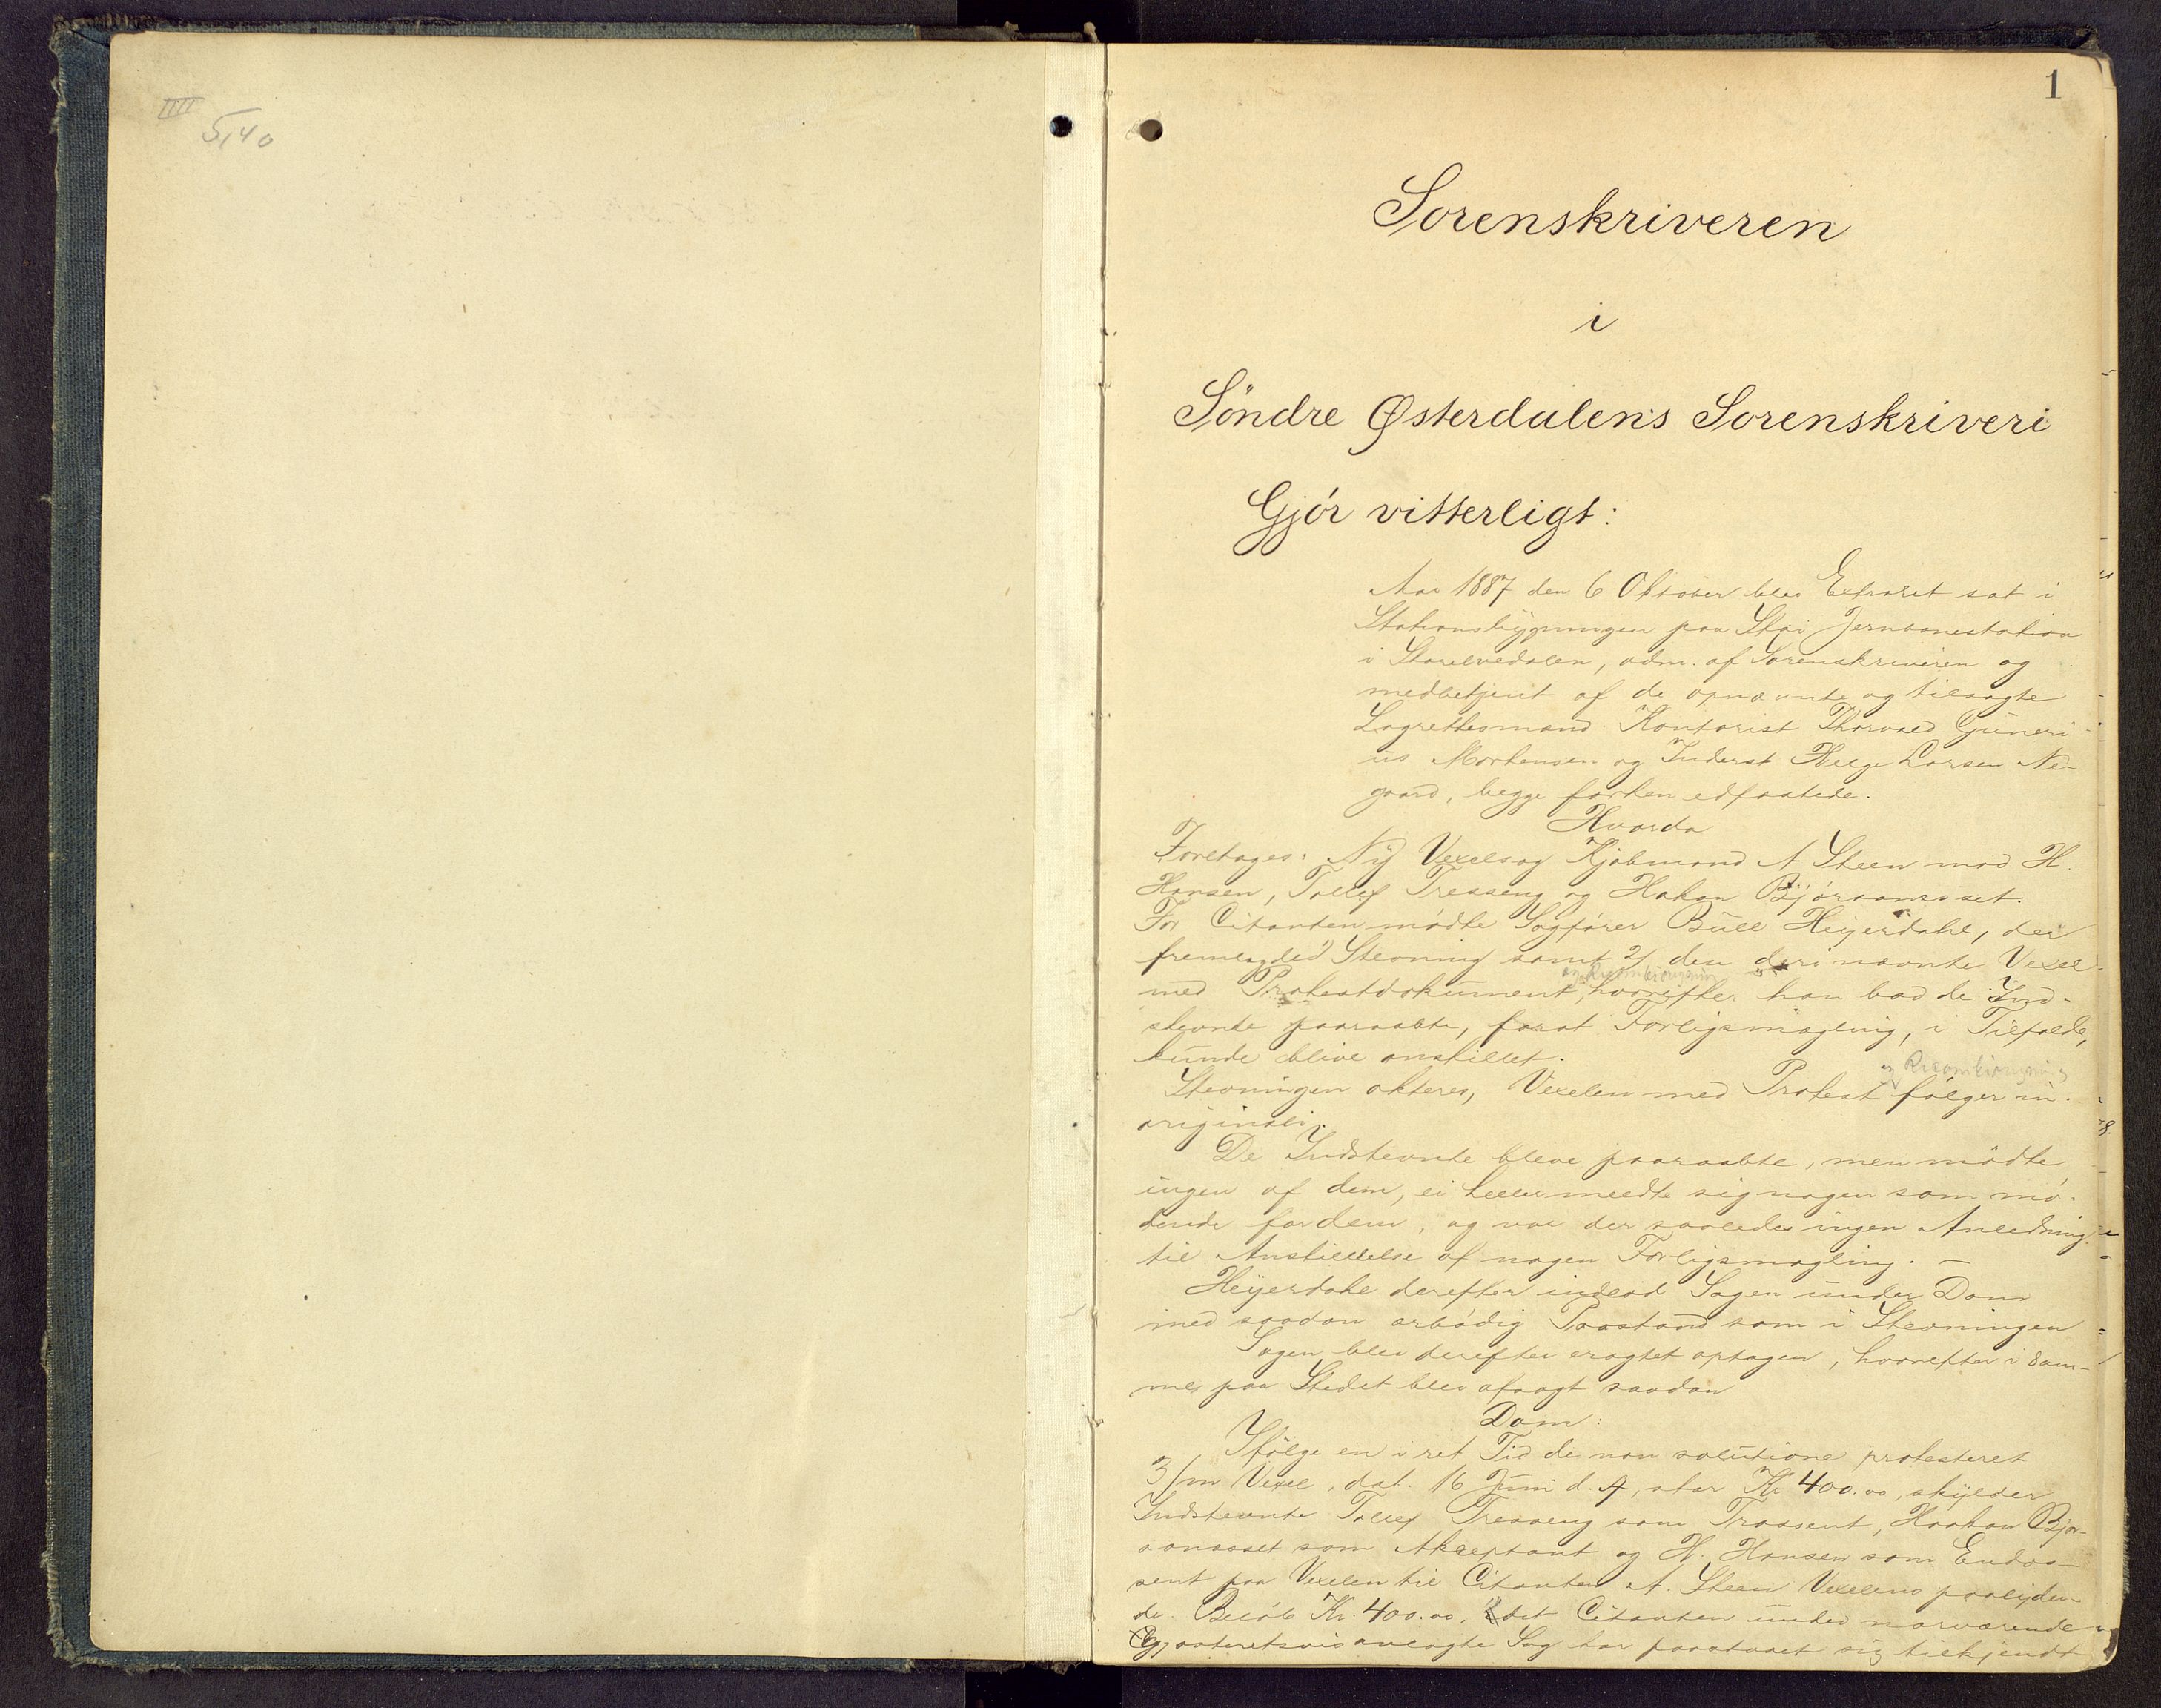 IIII
5,40
1
Sorenskriveren
i
Söndre Østerdalens Sorenskriveri
Gjör vitterligt:
Aar 1887 den 6 Oktober blev Extraret sat i
Stationsbygningen paa Stai Jernbanestation
i Storelvedalen, adm. af Sorenskriveren og
medbetjent af de opnævnte og tilsagte
Lagrettesmænd Kontorist Thorvald Güneri-
us Mortensen og Inderst Helge Larsen Ne-
gaard, begge forhen edfæstede.
Hvorda
Foretoges: Ny Vexelsag Kjøbmand A Steen mod H.
Hansen, Tollef Tresseng og Hakon Bjøraanæsset.
For Citanten mødte Sagfører Büll Heyerdahl, der
fremlagde 1) Stevning samt 2) den deri nævnte Vexel
og Recambioregning
med Protestdokument, hvorefter han bad de Ind-
stevnte paaraabte, forat Forligsmægling, i Tilfælde,
kunde blive anstillet.
og Recambioregning
Stevningen akteres, Vexelen med Protest følger in
originali.
De Indstevnte bleve paaraabte, men mødte
ingen af dem, ei heller meldte sig nogen som mø-
dende for dem, og var der saaledes ingen Anledning
til Anstillelse af nogen Forligsmægling. —
Heyerdahl derefter indlod Sagen under Dom
med saadan ærbødig Paastand som i Stevningen
Sagen blev derefter eragtet optagen, hvorefter i sam-
me paa Stedet blev afsagt saadan
Dom:
Ifølge en i ret Tid de non solutione protesteret
3/m Vexel, dat. 16 Juni d. A, stor Kr 400.00, skylder
Indstevnte Tollef Tresseng som Trassent, Haakon Bjør-
aanæsset som Akceptant og H. Hansen som Endos-
sent paa Vexelen til Citanten A. Steen Vexelens paalyden-
de Beløb Kr. 400.00, idet Citanten under nærværende
Gjesteretsvis anlagte Sag har paastaaet sig tilkjendt